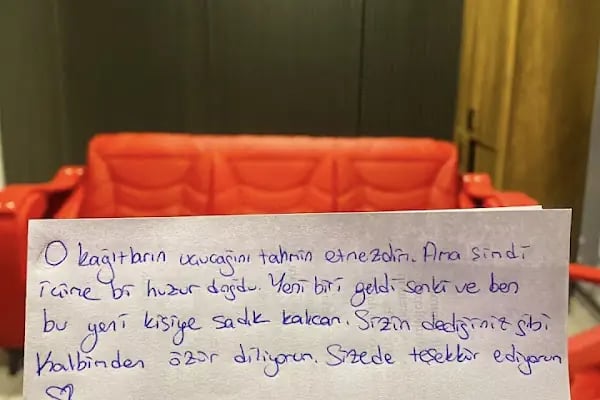 O kağıtların uçucağını tahmin etmezdin. Ama şimdi
içime bi huzur doğdu. Yeni biri geldi sanki ve ben
bu yeni kişiye sadık kalıcam. Sizin dediğiniz gibi
kalbimden özür diliyorum. Sizede teşekkür ediyorum
♡